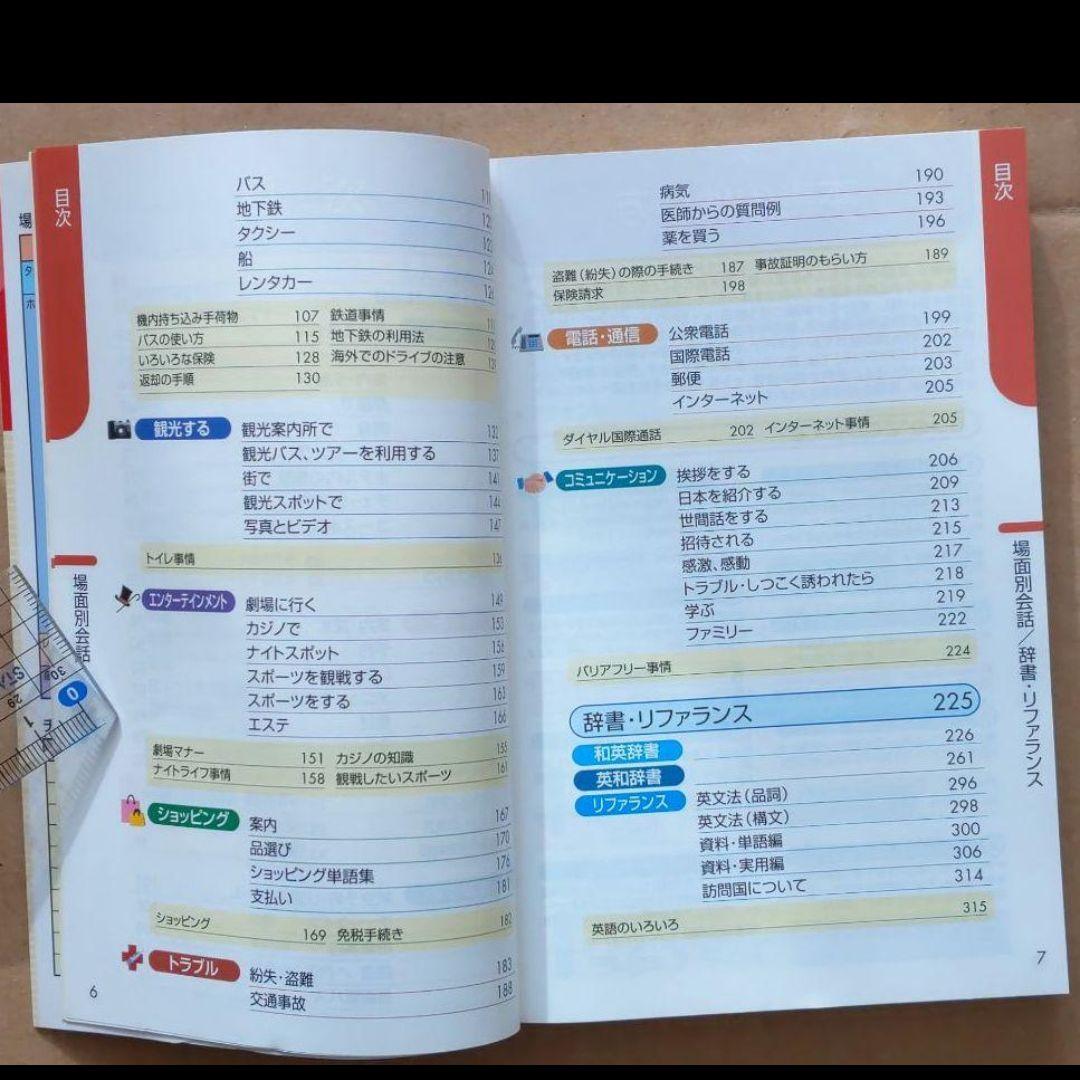 目次
バス
地下鉄
タクシー
船
レンタカー
機内持ち込み手荷物 107 鉄道事情
バスの使い方 115 地下鉄の利用法
いろいろな保険 128 海外でのドライブの注意
返却の手順 130
観光する 観光案内所で 132
観光バス、ツアーを利用する 137
街で 141
観光スポットで 144
写真とビデオ 147
トイレ事情 136
エンターテインメント 劇場に行く 149
カジノで 153
ナイトスポット 156
スポーツを観戦する 159
スポーツをする 163
エステ 166
劇場マナー 151 カジノの知識 155
ナイトライフ事情 158 観戦したいスポーツ 161
ショッピング 案内 167
品選び 170
ショッピング単語集 176
支払い 181
ショッピング 169 免税手続き 182
トラブル 紛失・盗難 183
交通事故 188
6
場面別会話
場
タ
ホ
0
1
29
30
目次
病気 190
医師からの質問例 193
薬を買う 196
盗難(紛失)の際の手続き 187 事故証明のもらい方 189
保険請求 198
電話・通信 公衆電話 199
国際電話 202
郵便 203
インターネット 205
ダイヤル国際通話 202 インターネット事情 205
コミュニケーション 挨拶をする 206
日本を紹介する 209
世間話をする 213
招待される 215
感激、感動 217
トラブル・しつこく誘われたら 218
学ぶ 219
ファミリー 222
バリアフリー事情 224
辞書・リファランス 225
和英辞書 226
英和辞書 261
リファランス 英文法(品詞) 296
英文法(構文) 298
資料・単語編 300
資料・実用編 306
訪問国について 314
英語のいろいろ 315
7
場面別会話/辞書・リファランス